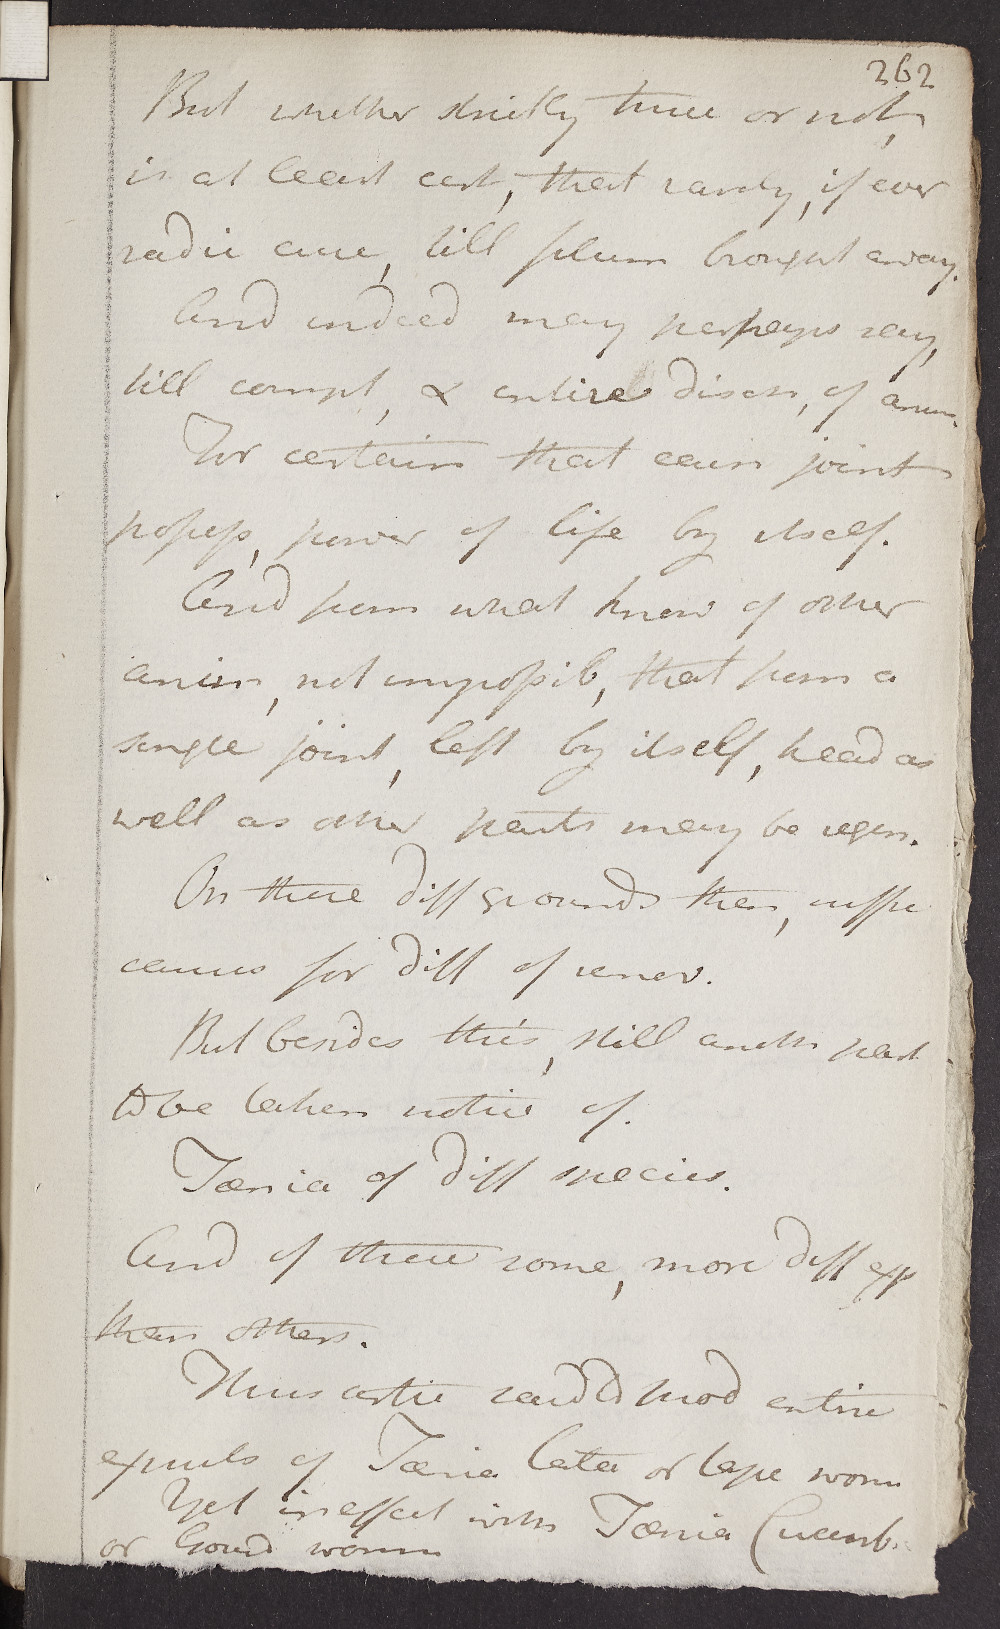 262
But whether strictly true or not,
is at least cert, that rarely, if ever
radic cure, till filum brought away.
And indeed may perhaps say,
till compl, & entire disch, of anim.
For certain that each joint
possess, power of life by itself.
And from what know of other
anim, not impossib, that from a
single joint, left by itself, head as
well as other parts may be regen.
On these diff grounds then, suffic
causes for diff of remov.
But besides this, still anoth part
to be taken notice of.
Tænia of diff species.
And of these some, more diff exp
than others.
Thus artic said to prod entire
expuls of Tænia lata or tape worm
Yet ineffect with Tænia Cucurb.
or Gourd worm